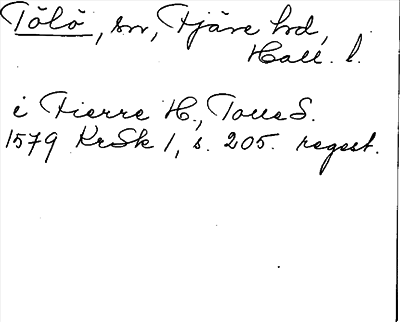 Tölö, sn, Fjäre hd,
Hall. l.
i Fierre H., Tolle S.
1579 KrSk 1, s. 205. regest.